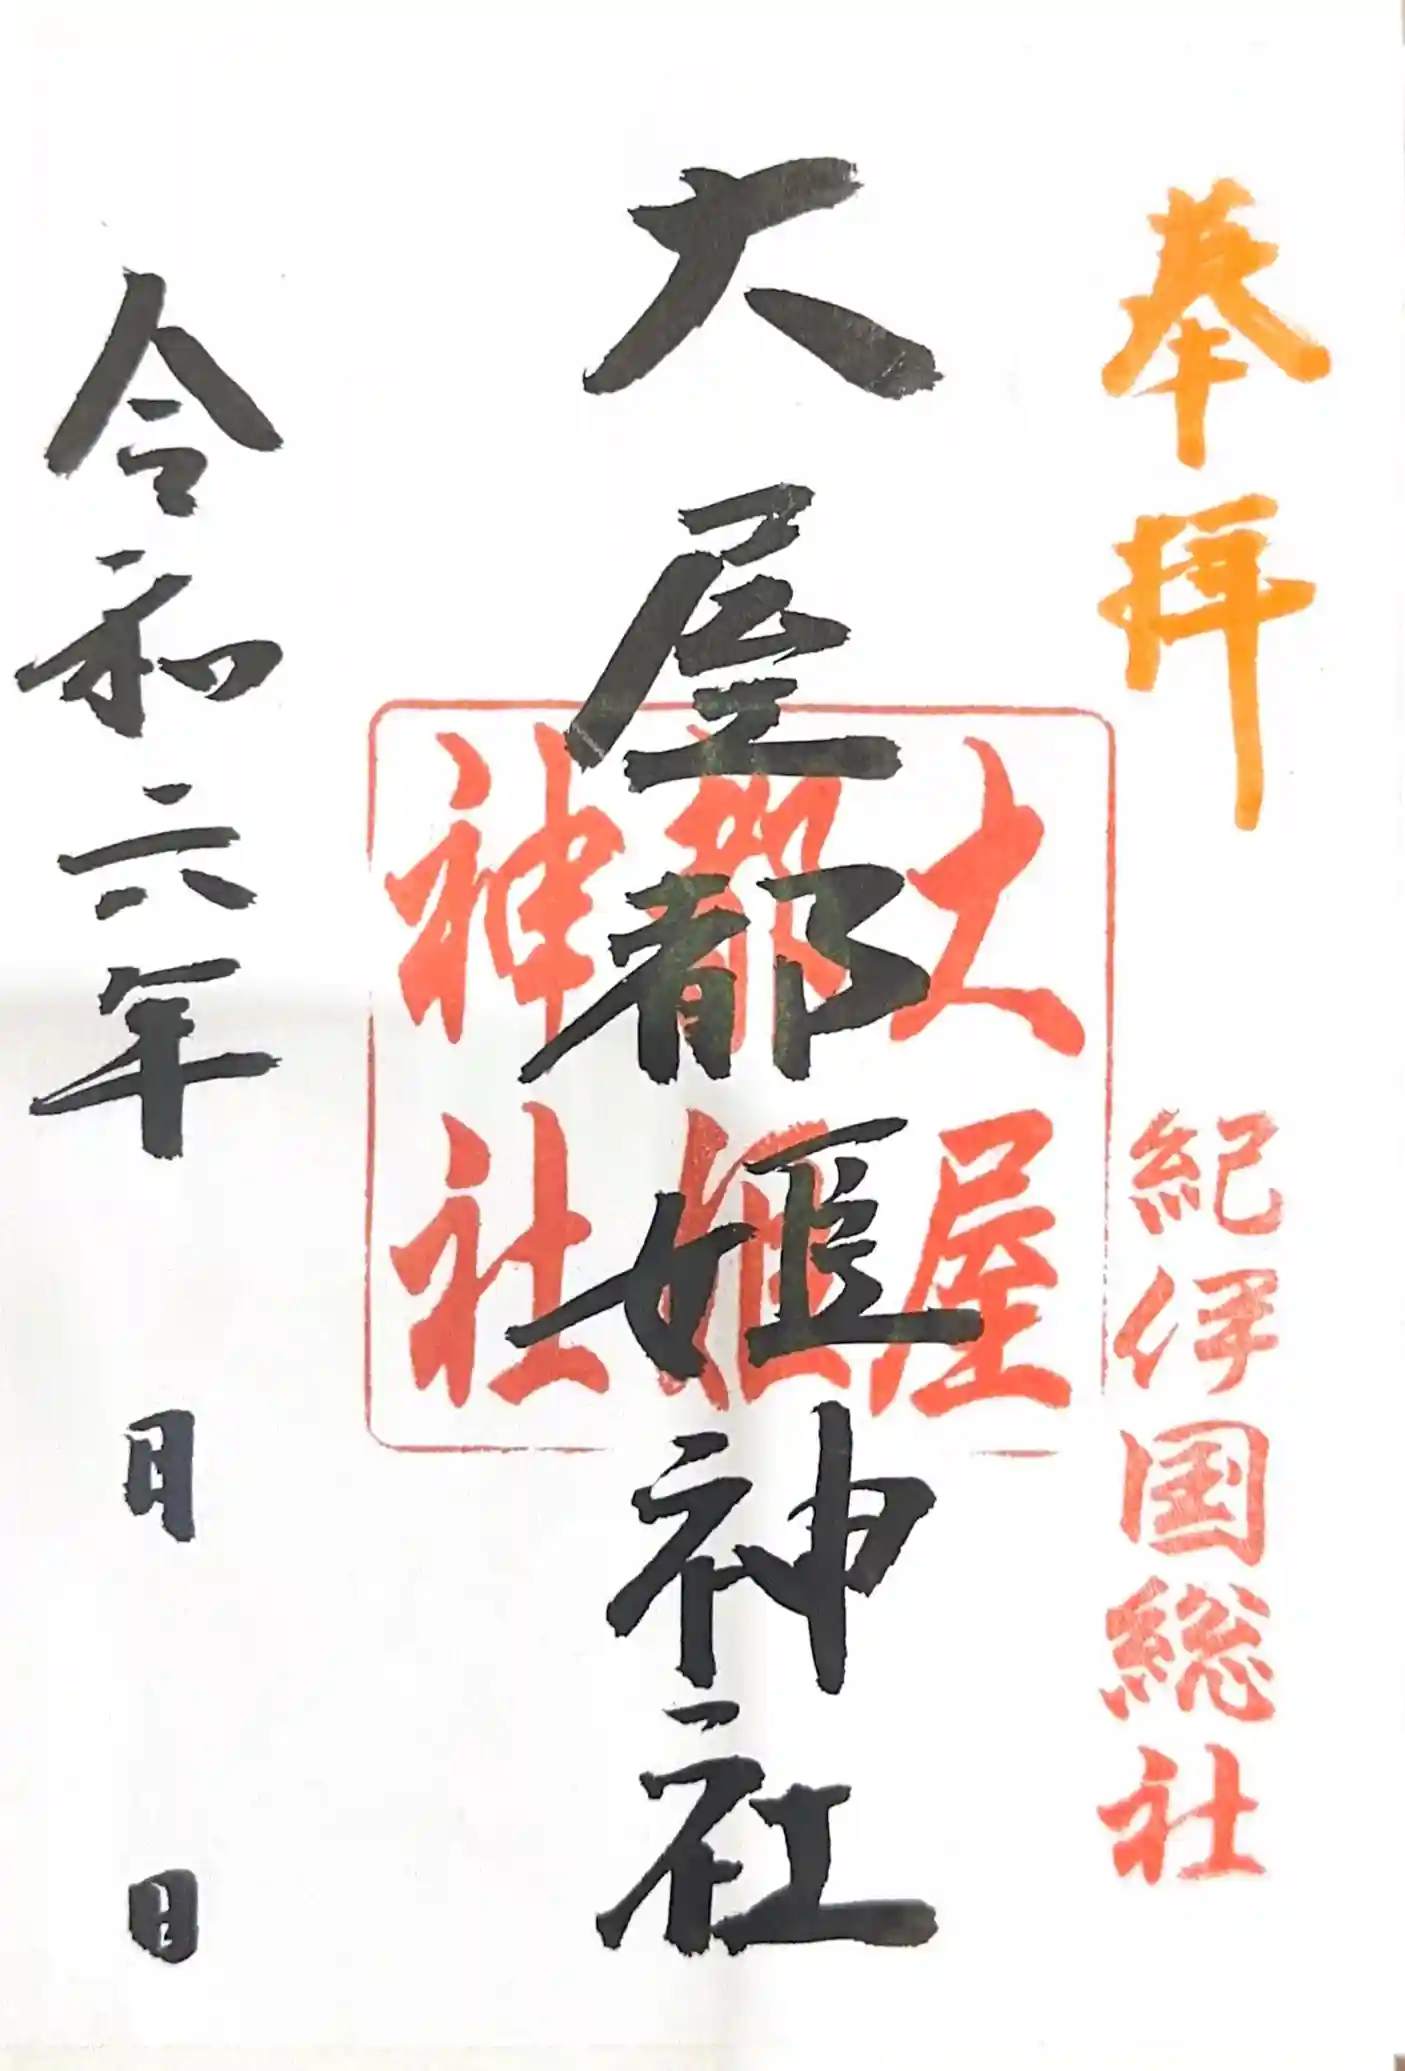 奉拝
紀伊国総社
大屋都姫神社
大屋
都姫
神社
令和六年 月 日